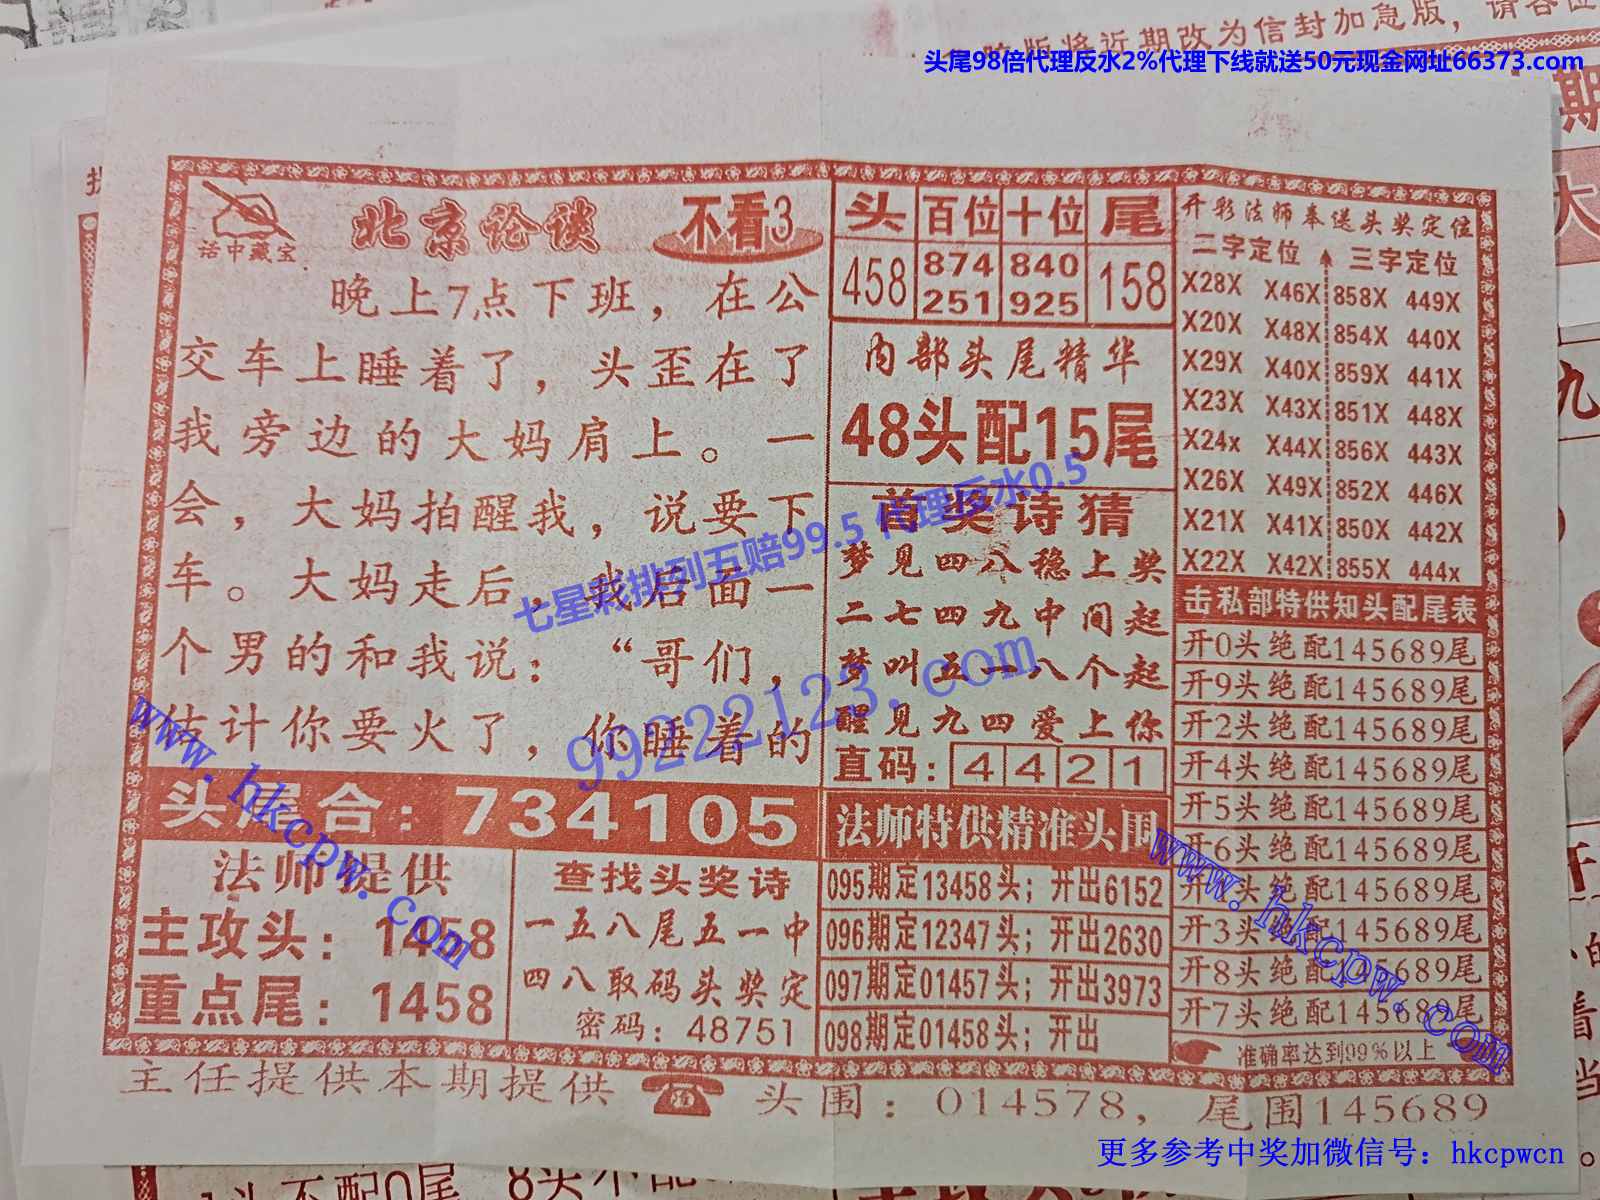 头尾98倍代理反水2%代理下线就送50元现金网址66373.com
版将近期改为信封加急版，请各位
期
大
九
话中藏宝
北京论谈
不看3
晚上7点下班，在公
交车上睡着了，头歪在了
我旁边的大妈肩上。一
会，大妈拍醒我，说要下
车。大妈走后，我后面一
个男的和我说：“哥们，
估计你要火了，你睡着的
头尾合：734105
法师提供
主攻头：1458
重点尾：1458
查找头奖诗
一五八尾五一中
四八取码头奖定
密码：48751
头 百位 十位 尾
458 874 840 158
251 925
内部头尾精华
48头配15尾
首奖诗猜
梦见四八稳上奖
二七四九中间起
梦叫五一八个起
醒见九四爱上你
直码：4 4 2 1
法师特供精准头围
095期定13458头；开出6152
096期定12347头；开出2630
097期定01457头；开出3973
098期定01458头；开出
开彩法师奉送头奖定位
二字定位 三字定位
X28X X46X 858X 449X
X20X X48X 854X 440X
X29X X40X 859X 441X
X23X X43X 851X 448X
X24x X44X 856X 443X
X26X X49X 852X 446X
X21X X41X 850X 442X
X22X X42X 855X 444x
击私部特供知头配尾表
开0头绝配145689尾
开9头绝配145689尾
开2头绝配145689尾
开4头绝配145689尾
开5头绝配145689尾
开6头绝配145689尾
开1头绝配145689尾
开3头绝配145689尾
开8头绝配145689尾
开7头绝配145689尾
准确率达到99%以上
主任提供本期提供 头围：014578，尾围145689
七星彩排列五赔99.5 代理反水0.5
99222123.com
www.hkcpw.com
www.hkcpw.com
更多参考中奖加微信号：hkcpwcn
1头不配0尾 8头不配